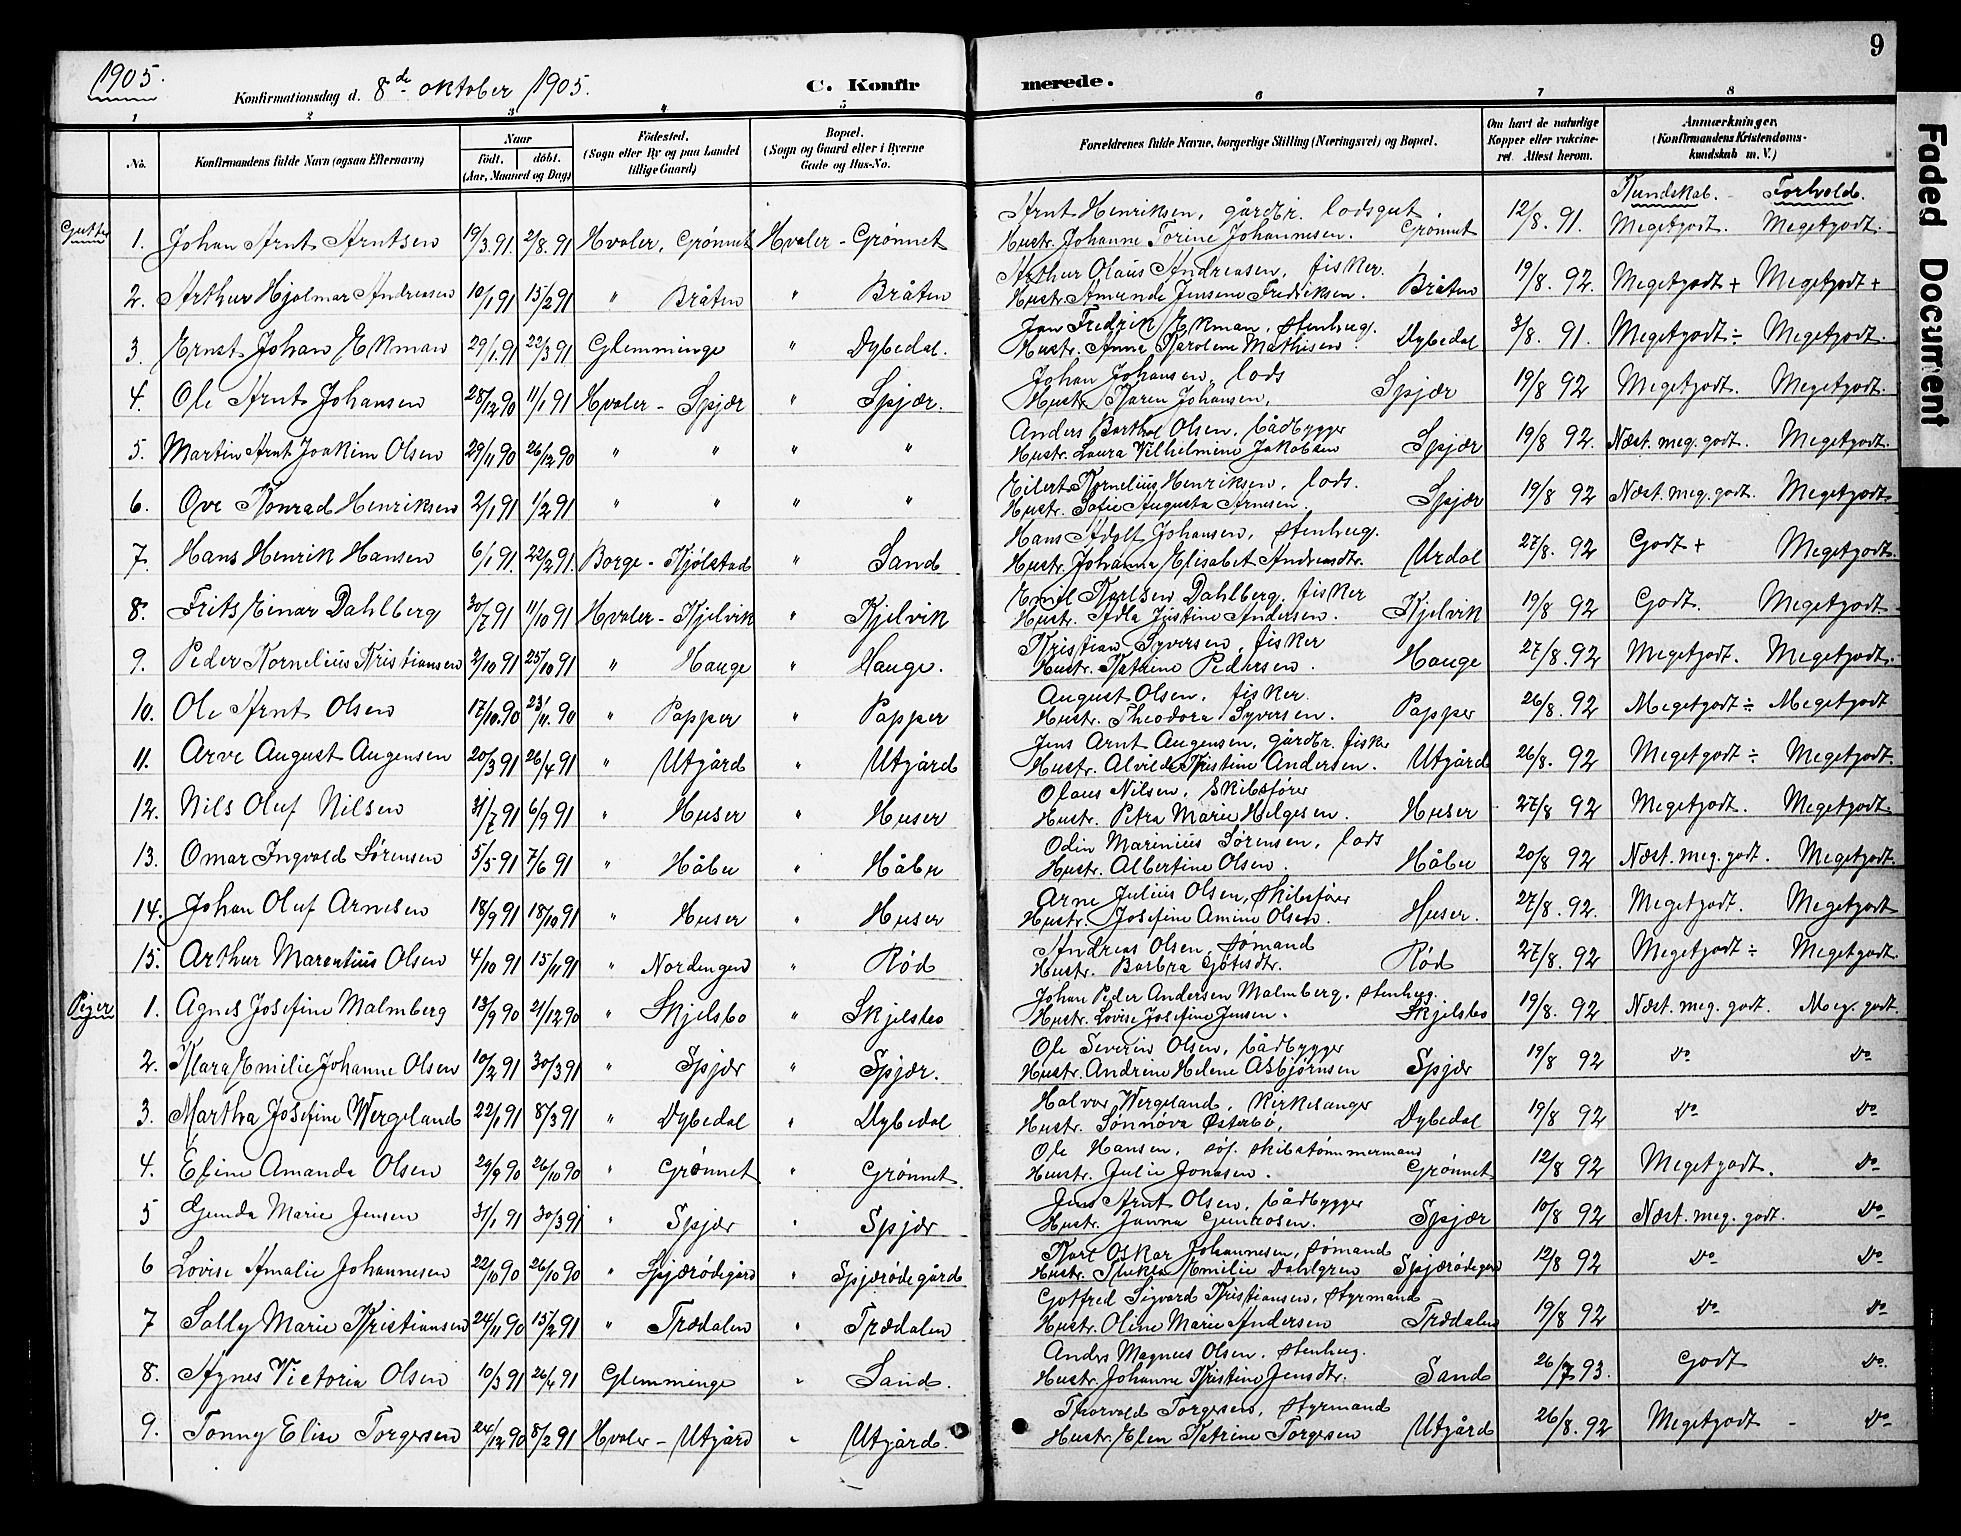 1905.
Konfirmationsdag d. 8de oktober 1905.
C. Konfir
merede.
9
Faded Document
1 2 3 4 5 6 7 8
No.
Konfirmandens fulde Navn (ogsaa Efternavn)
Naar
født. døbt.
(Aar, Maaned og Dag)
Fødested.
(Sogn eller By og paa Landet
tillige Gaard)
Bopæl.
(Sogn og Gaard eller i Byerne
Gade og Hus-No.
Forældrenes fulde Navne, borgerlige Stilling (Næringsvei) og Bopæl.
Om havt de naturlige
Kopper eller vakcine-
ret. Attest herom.
Anmærkninger
(Konfirmandens Kristendoms-
kundskab m. V.)
Kundskab. - Forhold.
Gutter
1. Johan Arnt Arntsen 19/3.91 2/8.91 Hvaler, Grønnet Hvaler - Grønnet Arnt Henriksen, gårdbr. lodsgut.
Hustr. Johanne Torine Johannesen. Grønnet 12/8.91. Megetgodt. Megetgodt.
2. Arthur Hjalmar Andreasen 10/1 91 15/2 91 " Bråten " Bråten Arthur Olaus Andreasen, fisker.
Hustr. Amunda Jensene Fredriksen. Bråten 19/8.92. Megetgodt + Megetgodt +
3. Ernst Johan Ekman 29/1.91 22/3 91 Glemminge " Dybedal. Jon Fredrik Ekman, stenhug.
Hustr. Anna Karolene Mathisen Dybedal 3/8. 91. Megetgodt ÷ Megetgodt.
4. Ole Arnt Johansen 28/12 90 11/1 91 Hvaler - Spjær " Spjær. Johan Johansen, lods
Hustr. Karen Johansen, Spjær 19/8 92 Megetgodt. Megetgodt.
5. Martin Arnt Joakim Olsen 29/11 90 26/12 90 " " " " Anders Barthol Olsen, bådbygger
Hustr. Laura Vilhelmine Jakobsen Spjær 19/8 92. Næst. meg. godt. Megetgodt.
6. Ove Konrad Henriksen 2/1 91 1/2 91 " " " " Eilert Kornelius Henriksen, lods.
Hustr. Sofie Augusta Arnesen. Spjær 19/8 92 Næst. meg. godt. Megetgodt
7. Hans Henrik Hansen 6/1 91. 22/2 91. Borge - Kjølstad " Sand Hans Adolf Johansen, stenhug.
Hustr. Johanna Elisabet Andreasdtr. Urdal 27/8. 92 Godt + Megetgodt.
8. Frits Einar Dahlberg 30/7 91 11/10 91 Hvaler - Kjelvik " Kjelvik Emil Karlsen Dahlberg, fisker
Hustr. Adla Justine Andersen. Kjelvik 19/8 92 Godt. Megetgodt
9. Peder Kornelius Kristiansen 2/10 91 25/10 91 " Hauge " Hauge. Kristian Syversen, fisker
Hustr. Katrine Pedersen. Hauge 27/8.92 Megetgodt. Megetgodt.
10. Ole Arnt Olsen 17/10.90 23/11.90 " Papper " Papper August Olsen, fisker.
Hustr. Theodora Syversen. Papper 26/8.92 Megetgodt ÷ Megetgodt
11. Arve August Augensen 20/3 91 26/4 91 " Utgård " Utgård Jens Arnt Augensen, gårdbr. fisker
Hustr. Alvilde Kristine Andersen. Utgård 26/8. 92 Megetgodt ÷ Megetgodt.
12. Nils Oluf Nilsen 31/7 91 6/9 91 " Huser " Huser Olaus Nilsen, Skibsfører
Hustr. Petra Marie Helgesen. Huser 27/8 92 Megetgodt. Megetgodt.
13. Omar Ingvald Sørensen 5/5 91 7/6 91 " Håbu " Håbu Odin Marinius Sørensen, lods
Hustr. Albertine Olsen. Håbu 20/8 92 Næst. meg. godt. Megetgodt.
14. Johan Oluf Arnesen 18/9 91 18/10 91 " Huser " Huser Arne Julius Olsen, skibsfører
Hustr. Josefine Amine Olsen. Huser. 27/8.92. Megetgodt. Megetgodt
15. Arthur Marentius Olsen 4/10 91 15/11 91 " Nordengen " Rød Andreas Olsen, sømand
Hustr. Barbra Gøtesdtr. Rød 27/8.92 Megetgodt ÷ Megetgodt.
Piger
1. Agnes Josefine Malmberg 13/9 90 21/12 90 " Skjelsbo " Skjelsbo Johan Peder Andersen Malmberg, stenhug.
Hustr. Lovise Josefine Jensen. Skjelsbo 19/8. 92 Næst. meg. godt. Meg. godt.
2. Klara Emilie Johanne Olsen 10/2 91 30/3 91 " Spjær " Spjær. Ole Severin Olsen, bådbygger
Hustr. Andrine Helene Asbjørnsen Spjær 19/8 92 do do
3. Martha Josefine Wergeland 22/1 91 8/3 91 " Dybedal " Dybedal Halvor Wergeland, Kirkesanger
Hustr. Sønnøva Østerbø, Dybedal 19/8 92 do do
4. Eline Amanda Olsen 29/9 90 26/10 90 " Grønnet " Grønnet Ole Hansen, søf. skibstømmermand
Hustr. Julie Jonasen. Grønnet 12/8 92 Megetgodt. do
5 Gunda Marie Jensen 31/1 91 30/3 91 " Spjær " Spjær Jens Arnt Olsen, bådbygger
Hustr. Janna Gunrosen. Spjær 10/8 92 Næst. meg. godt. do
6 Lovise Amalie Johannesen 22/10 90 26/10 90 " Spjærødegård " Spjærødegård Karl Oskar Johannesen, sømand
Hustr. Thekla Emilie Dahlgren Spjærødegård 12/8 92 do do
7 Solly Marie Kristiansen 24/11 90 15/2 91 " Trædalen " Trædalen Gotfred Sigvard Kristiansen, styrmand
Hustr. Oline Marie Andersen Trædalen 19/8 92 do do
8. Agnes Victoria Olsen 10/3 91 26/4 91 Glemminge " Sand. Anders Magnus Olsen, stenhug.
Hustr. Johanna Kristine Jensdtr. Sand 26/7 93. Godt do.
9. Tonny Elise Torgersen 24/12 90 8/2 91 Hvaler - Utgård " Utgård. Thorvald Torgersen, styrmand
Hustr. Elen Katrine Torgesen Utgård 26/8.92 Megetgodt - do